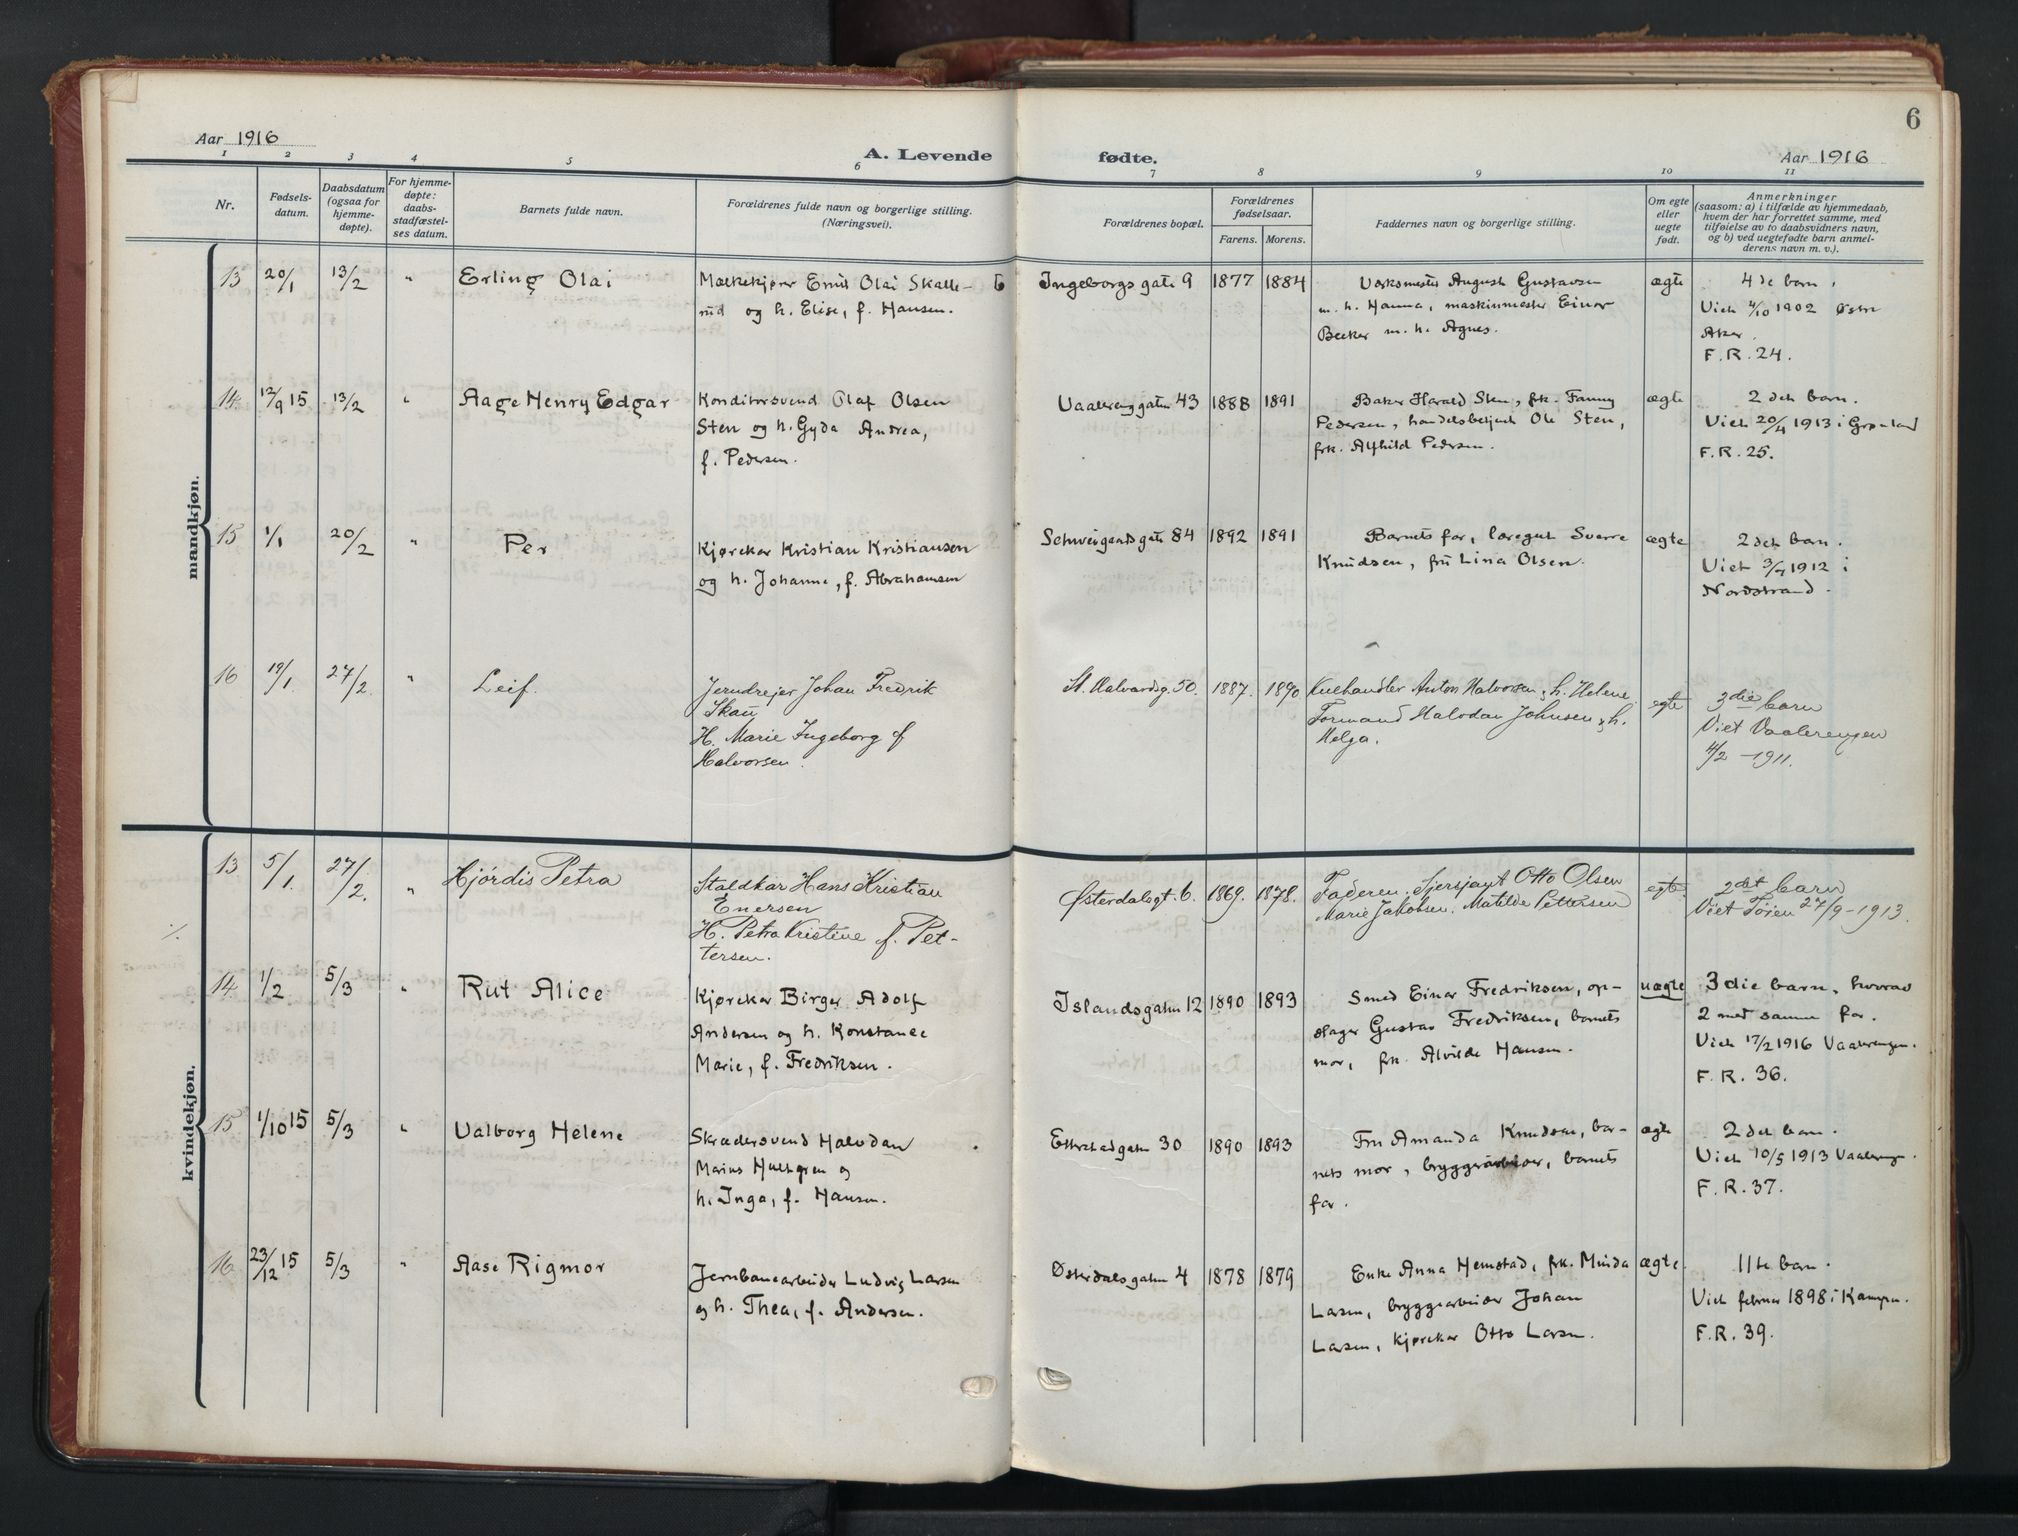 6
Aar 1916
A. Levende fødte.
Aar 1916
1 2 3 4 5 6 7 8 9 10 11
Nr.
Fødsels-
datum.
Daabsdatum
(ogsaa for
hjemme-
døpte).
For hjemme-
døpte:
daabs-
stadfæstel-
ses datum.
Barnets fulde navn.
Forældrenes fulde navn og borgerlige stilling.
(Næringsvei).
Forældrenes bopæl.
Forældrenes
fødselsaar.
Farens. Morens.
Faddernes navn og borgerlige stilling.
Om egte
eller
uegte
født.
Anmerkninger
(saasom: a) i tilfælde av hjemmedaab,
hvem der har forrettet samme, med
tilføielse av to daabsvidners navn,
og b) ved uegtefødte barn anmel-
derens navn m. v.).
mandkjøn.
13 20/1 13/2 " Erling Olai
Mælkekjører Emil Olai Skalle-
rud og h. Elise, f. Hansen.
6
Ingeborgs gate 9 1877 1884
Verksmester August Gustavsen
m. h. Hanna, maskinmester Einar
Becker m. h. Agnes.
ægte
4de barn.
Viet 4/10 1902 Østre
Aker.
F. R. 24.
14 12/9 15 13/2 " Aage Henry Edgar
Konditorsvend Olaf Olsen
Sten og h. Gyda Andrea,
f. Pedersen.
Vaalerenggaten 43 1888 1891
Baker Harald Sten, frk. Fanny
Pedersen, handelsbetjent Ole Sten,
frk. Alfhild Pedersen.
ægte
2det barn.
Viet 20/4 1913 i Grønland
F. R. 25.
15 1/1 20/2 " Per
Kjørekar Kristian Kristiansen
og h. Johanne, f. Abrahamsen
Schweigaards gate 84 1892 1891
Barnets far, læregut Sverre
Knudsen, fru Lina Olsen.
ægte
2det barn.
Viet 3/4 1912 i
Nordstrand.
16 19/1 27/2. " Leif.
Jerndreier Johan Fredrik
Skau
H. Marie Ingeborg f
Halvorsen.
St. Halvardsg. 50. 1887. 1890
Kulhandler Anton Halvorsen, h. Helene
Formand Halvdan Johnsen, h.
Helga.
egte
3die barn
Viet Vaalerengen
4/2 - 1911.
kvindekjøn.
13 5/1. 27/2. " Hjørdis Petra
Staldkar Hans Kristian
Enersen
H. Petra Kristine f. Pet-
tersen.
Østerdalsgt. 6. 1869. 1878.
Faderen. Sjersjant Otto Olsen
Marie Jakobsen. Matilde Pettersen
egte.
2det barn
Viet Tøien 27/9-1913.
14 1/2 5/3 " Rut Alice
Kjørekar Birger Adolf
Andersen og h. Konstance
Marie, f. Fredriksen.
Islandsgaten 12 1890 1893
Smed Einar Fredriksen, op-
slager Gustav Fredriksen, barnets
mor, frk. Alvilde Hansen.
uægte
3die barn, hvorav
2 med samme far.
Viet 17/2 1916 Vaalerengen.
F. R. 36.
15 1/10 15 5/3 " Valborg Helene
Skrædersvend Halvdan
Marius Hultgren og
h. Inga, f. Hansen.
Etterstadgaten 30 1890 1893
Fru Amanda Knudsen, bar-
nets mor, bryggeriarbeider, barnets
far.
ægte
2det barn.
Viet 10/5 1913 Vaalereng.
F. R. 37.
16 23/12 15 5/3 " Aase Rigmor
Jernbanearbeider Ludvig Larsen
og h. Thea, f. Andersen.
Østerdalsgaten 4 1878 1879
Enke Anna Hemstad, frk. Minda
Larsen, bryggearbeider Johan
Larsen, kjørekar Otto Larsen.
ægte.
11te barn.
Viet februar 1898 i Kampen.
F. R. 39.